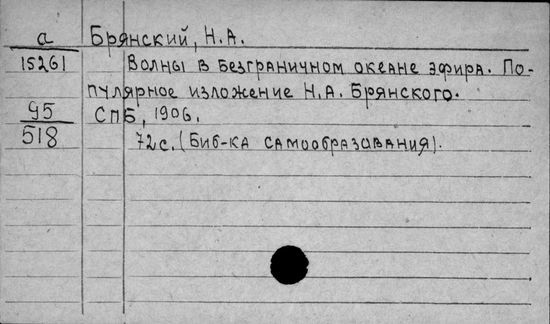 а Брянский, Н.А.
15261 Волны в безграничном океане эфира. По-
пулярное изложение Н.А. Брянского.
95 СПБ, 1906.
518 72с. (Биб-ка самообразования).